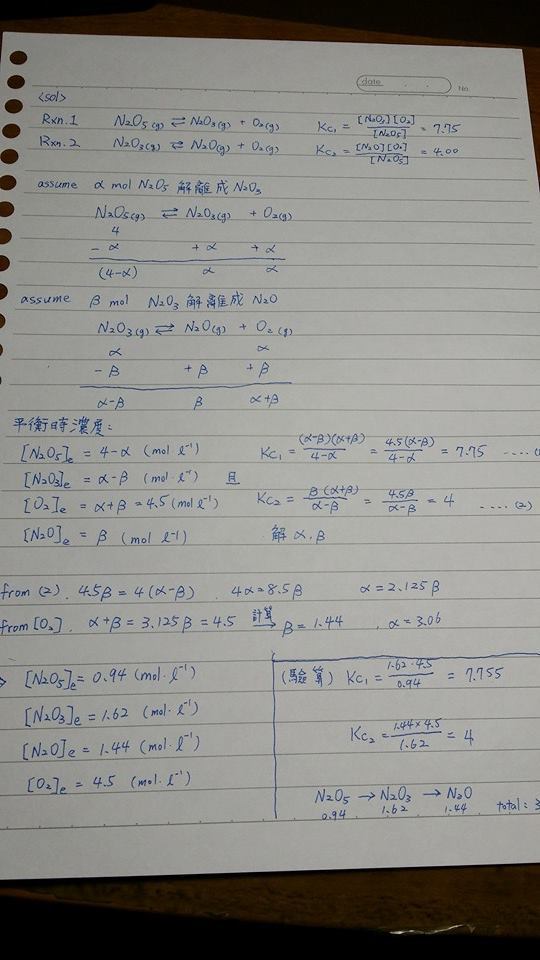 date . .
No.
<sol>
Rxn.1 N₂O₅(g) ⇌ N₂O₃(g) + O₂(g) Kc₁ = [N₂O₃][O₂] / [N₂O₅] = 7.75
Rxn.2 N₂O₃(g) ⇌ N₂O(g) + O₂(g) Kc₂ = [N₂O][O₂] / [N₂O₃] = 4.00
assume α mol N₂O₅ 解離成 N₂O₃
N₂O₅(g) ⇌ N₂O₃(g) + O₂(g)
4
- α + α + α
(4-α) α α
assume β mol N₂O₃ 解離成 N₂O
N₂O₃(g) ⇌ N₂O(g) + O₂(g)
α α
- β + β + β
α-β β α+β
平衡時濃度:
[N₂O₅]e = 4-α (mol·ℓ⁻¹) Kc₁ = (α-β)(α+β) / 4-α = 4.5(α-β) / 4-α = 7.75 ....
[N₂O₃]e = α-β (mol·ℓ⁻¹) 且
[O₂]e = α+β = 4.5 (mol·ℓ⁻¹) Kc₂ = β(α+β) / α-β = 4.5β / α-β = 4 .... (2)
[N₂O]e = β (mol ℓ⁻¹) 解 α, β
from (2). 4.5β = 4(α-β) . 4α = 8.5β α = 2.125β
from [O₂]. α+β = 3.125β = 4.5 計算→ β = 1.44 , α = 3.06
[N₂O₅]e = 0.94 (mol·ℓ⁻¹)
[N₂O₃]e = 1.62 (mol·ℓ⁻¹)
[N₂O]e = 1.44 (mol·ℓ⁻¹)
[O₂]e = 4.5 (mol·ℓ⁻¹)
(驗算) Kc₁ = 1.62·4.5 / 0.94 = 7.755
Kc₂ = 1.44×4.5 / 1.62 = 4
N₂O₅ → N₂O₃ → N₂O
0.94 1.62 1.44 total: